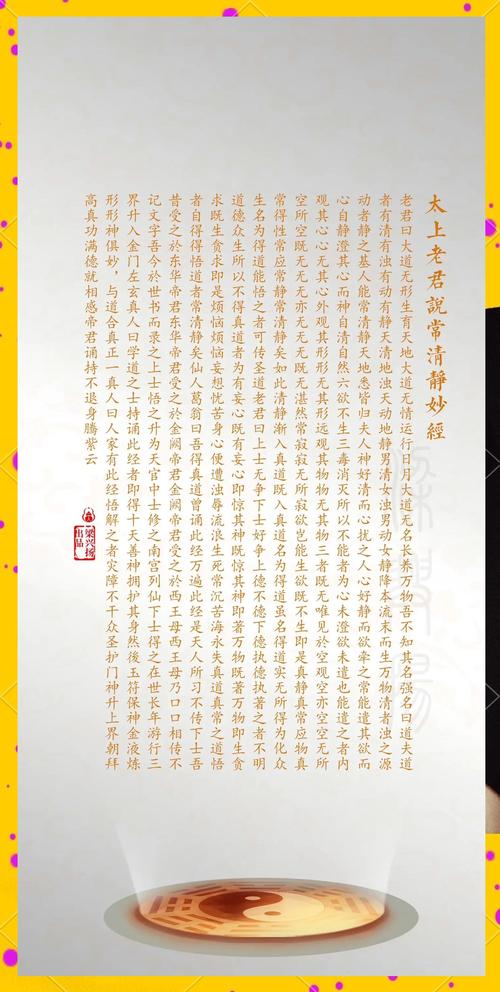 太上老君説常清靜妙經
老君曰大道无形生育天地大道无情运行日月大道无名长养万物吾不知其名强名曰道夫道
者有清有浊有动有静天清地浊天动地静男清女浊男动女静降本流末而生万物清者浊之源
动者静之基人能常清静天地悉皆归夫人神好清而心扰之人心好静而欲牵之常能遣其欲而
心自静澄其心而神自清自然六欲不生三毒消灭所以不能者为心未澄欲未遣也能遣之者内
观其心心无其心外观其形形无其形远观其物物无其物三者既无唯见於空观空亦空空无所
空所空既无无无亦无无无既无湛然常寂寂无所寂欲岂能生欲既不生即是真静真常应物真
常得性常应常静常清静矣如此清静渐入真道既入真道名为得道虽名得道实无所得为化众
生名为得道能悟之者可传圣道老君曰上士无争下士好争上德不德下德执德执著之者不明
道德众生所以不得真道者为有妄心既有妄心即惊其神既惊其神即著万物既著万物即生贪
求既生贪求即是烦恼烦恼妄想忧苦身心便遭浊辱流浪生死常沉苦海永失真道真常之道悟
者自得得悟道者常清静矣仙人葛翁曰吾得真道曾诵此经万遍此经是天人所习不传下士吾
昔受之於东华帝君东华帝君受之於金阙帝君金阙帝君受之於西王母西王母乃口口相传不
记文字吾今於世书而录之上士悟之升为天官中士修之南宫列仙下士得之在世长年游行三
界升入金门左玄真人曰学道之士持诵此经者即得十天善神拥护其身然後玉符保神金液炼
形形神俱妙，与道合真正一真人曰人家有此经悟解之者灾障不干众圣护门神升上界朝拜
高真功满德就相感帝君诵持不退身腾紫云
梁兴扬
出品